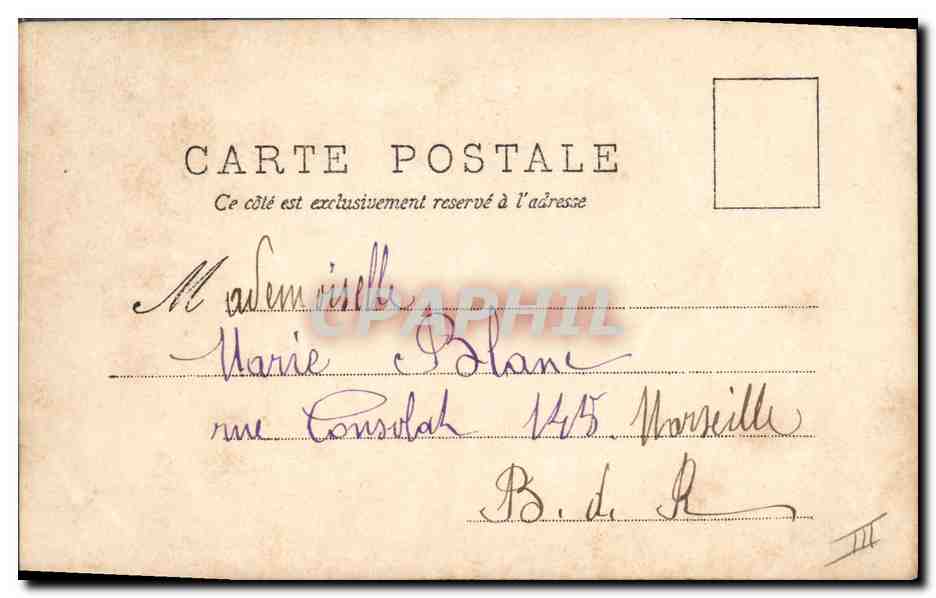 CARTE POSTALE
Ce côté est exclusivement reservé à l'adresse
Mademoiselle
CPAPHIL
Marie Blanc
rue Consolat 145. Marseille
B. d. R
III